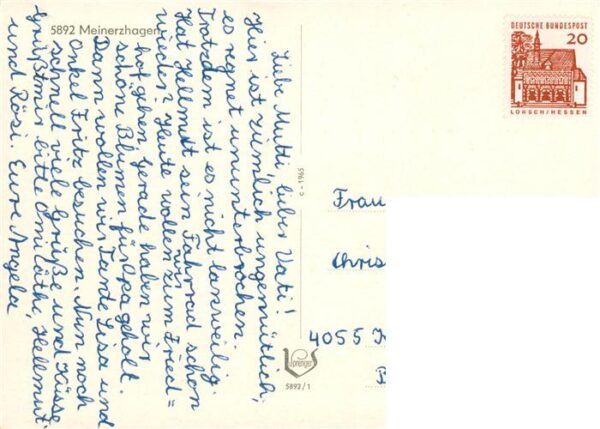 5892 Meinerzhagen
Liebe Mutti, lieber Vati!
Hier ist ziemlich ungemütlich,
es regnet ununterbrochen.
Trotzdem ist es nicht langweilig.
Hat Hellmut sein Fahrrad schon
wieder? Heute wollen wir zum Fried=
hof gehen. Gerade haben wir
schöne Blumen für Opa geholt.
Dann wollen wir Tante Lisa und
Onkel Fritz besuchen. Nun noch
schnell viele Grüße und Küsse.
Grüßt mir bitte Omi Käthe, Hellmut
und Rösi. Eure Angela
c - 1965
5892/1
DEUTSCHE BUNDESPOST
20
LORSCH/HESSEN
Frau
Chris
4055